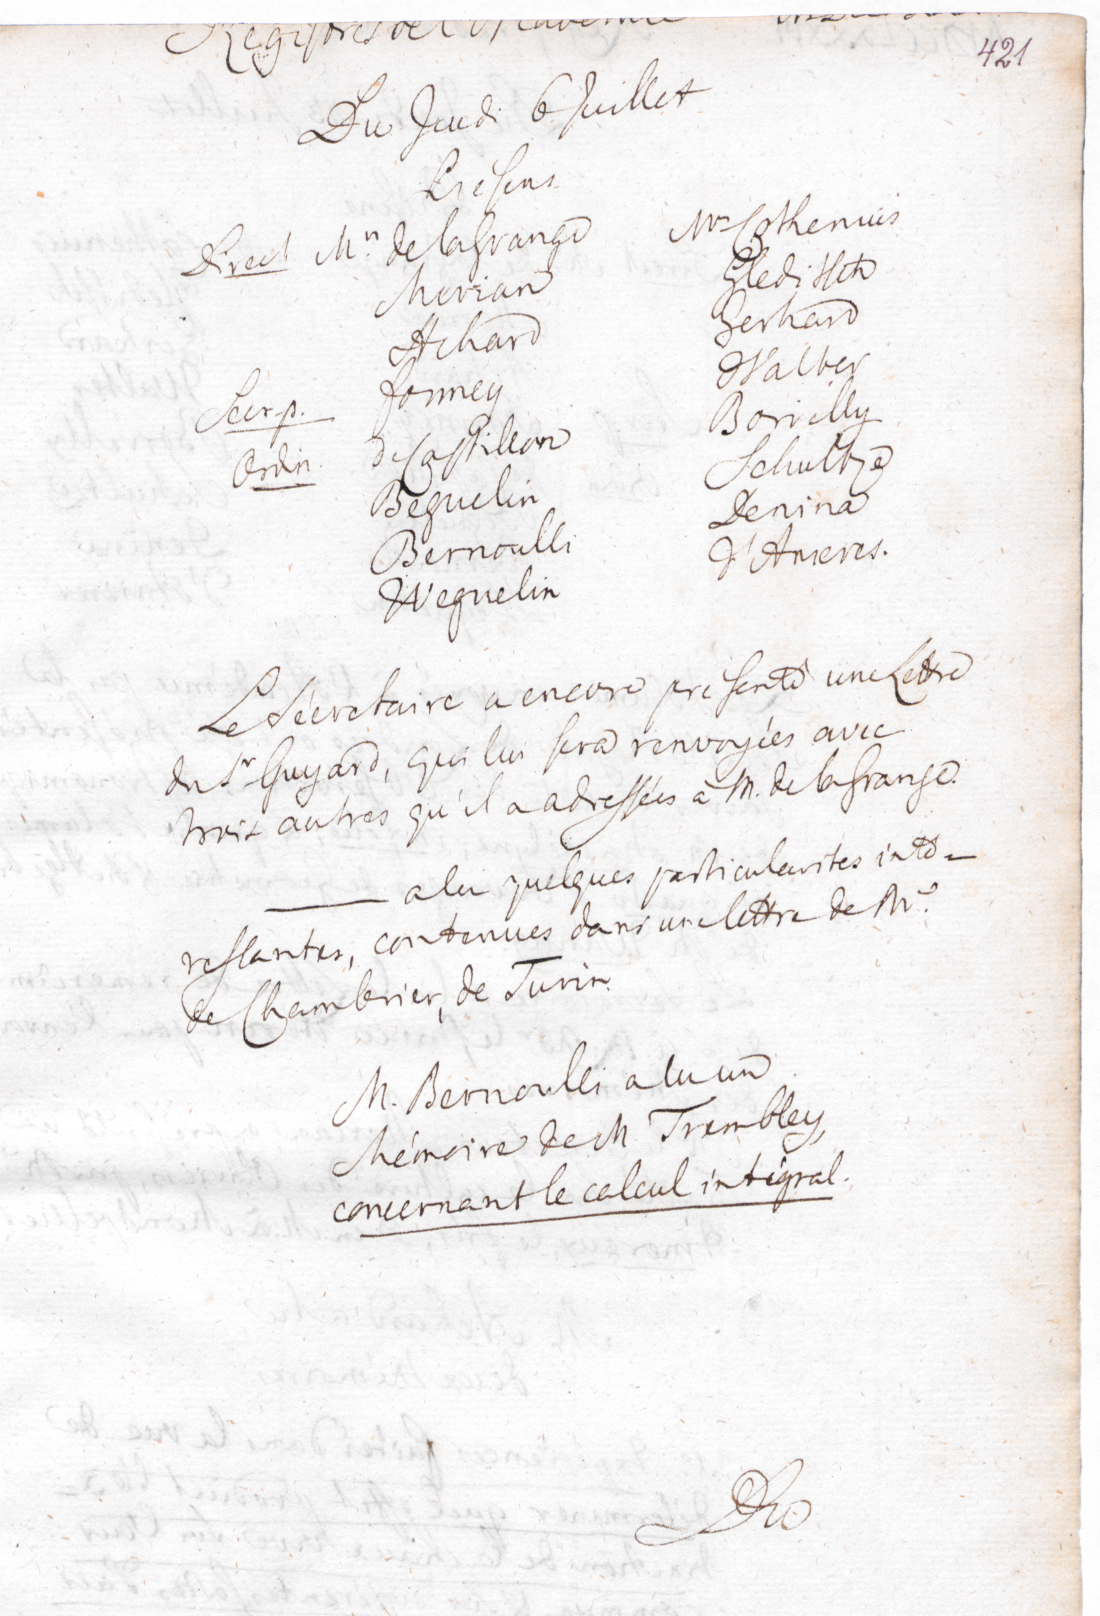 Registres de l'Academie
421
Du Jeudi 6 Juillet
Presens.
Direct Mrs. de la Grange
Merian
Achard
Secr. p. Formey
Ordin. de Castillon
Beguelin
Bernoulli
Weguelin
Mrs Cothenius
Gleditsch
Gerhard
Walter
Borrelly
Schultze
Denina
d'Anieres.
Le Secretaire a encore presenté une Lettre
du Sr Guyard, qui lui sera renvoyées avec
trois autres qu'il a adressées à M. de la Grange.
——— a lu quelques particularites inté=
ressantes, contenues dans une lettre de Mr.
de Chambrier, de Turin.
M. Bernoulli a lu un
Mémoire de M Trembley,
concernant le calcul intégral.